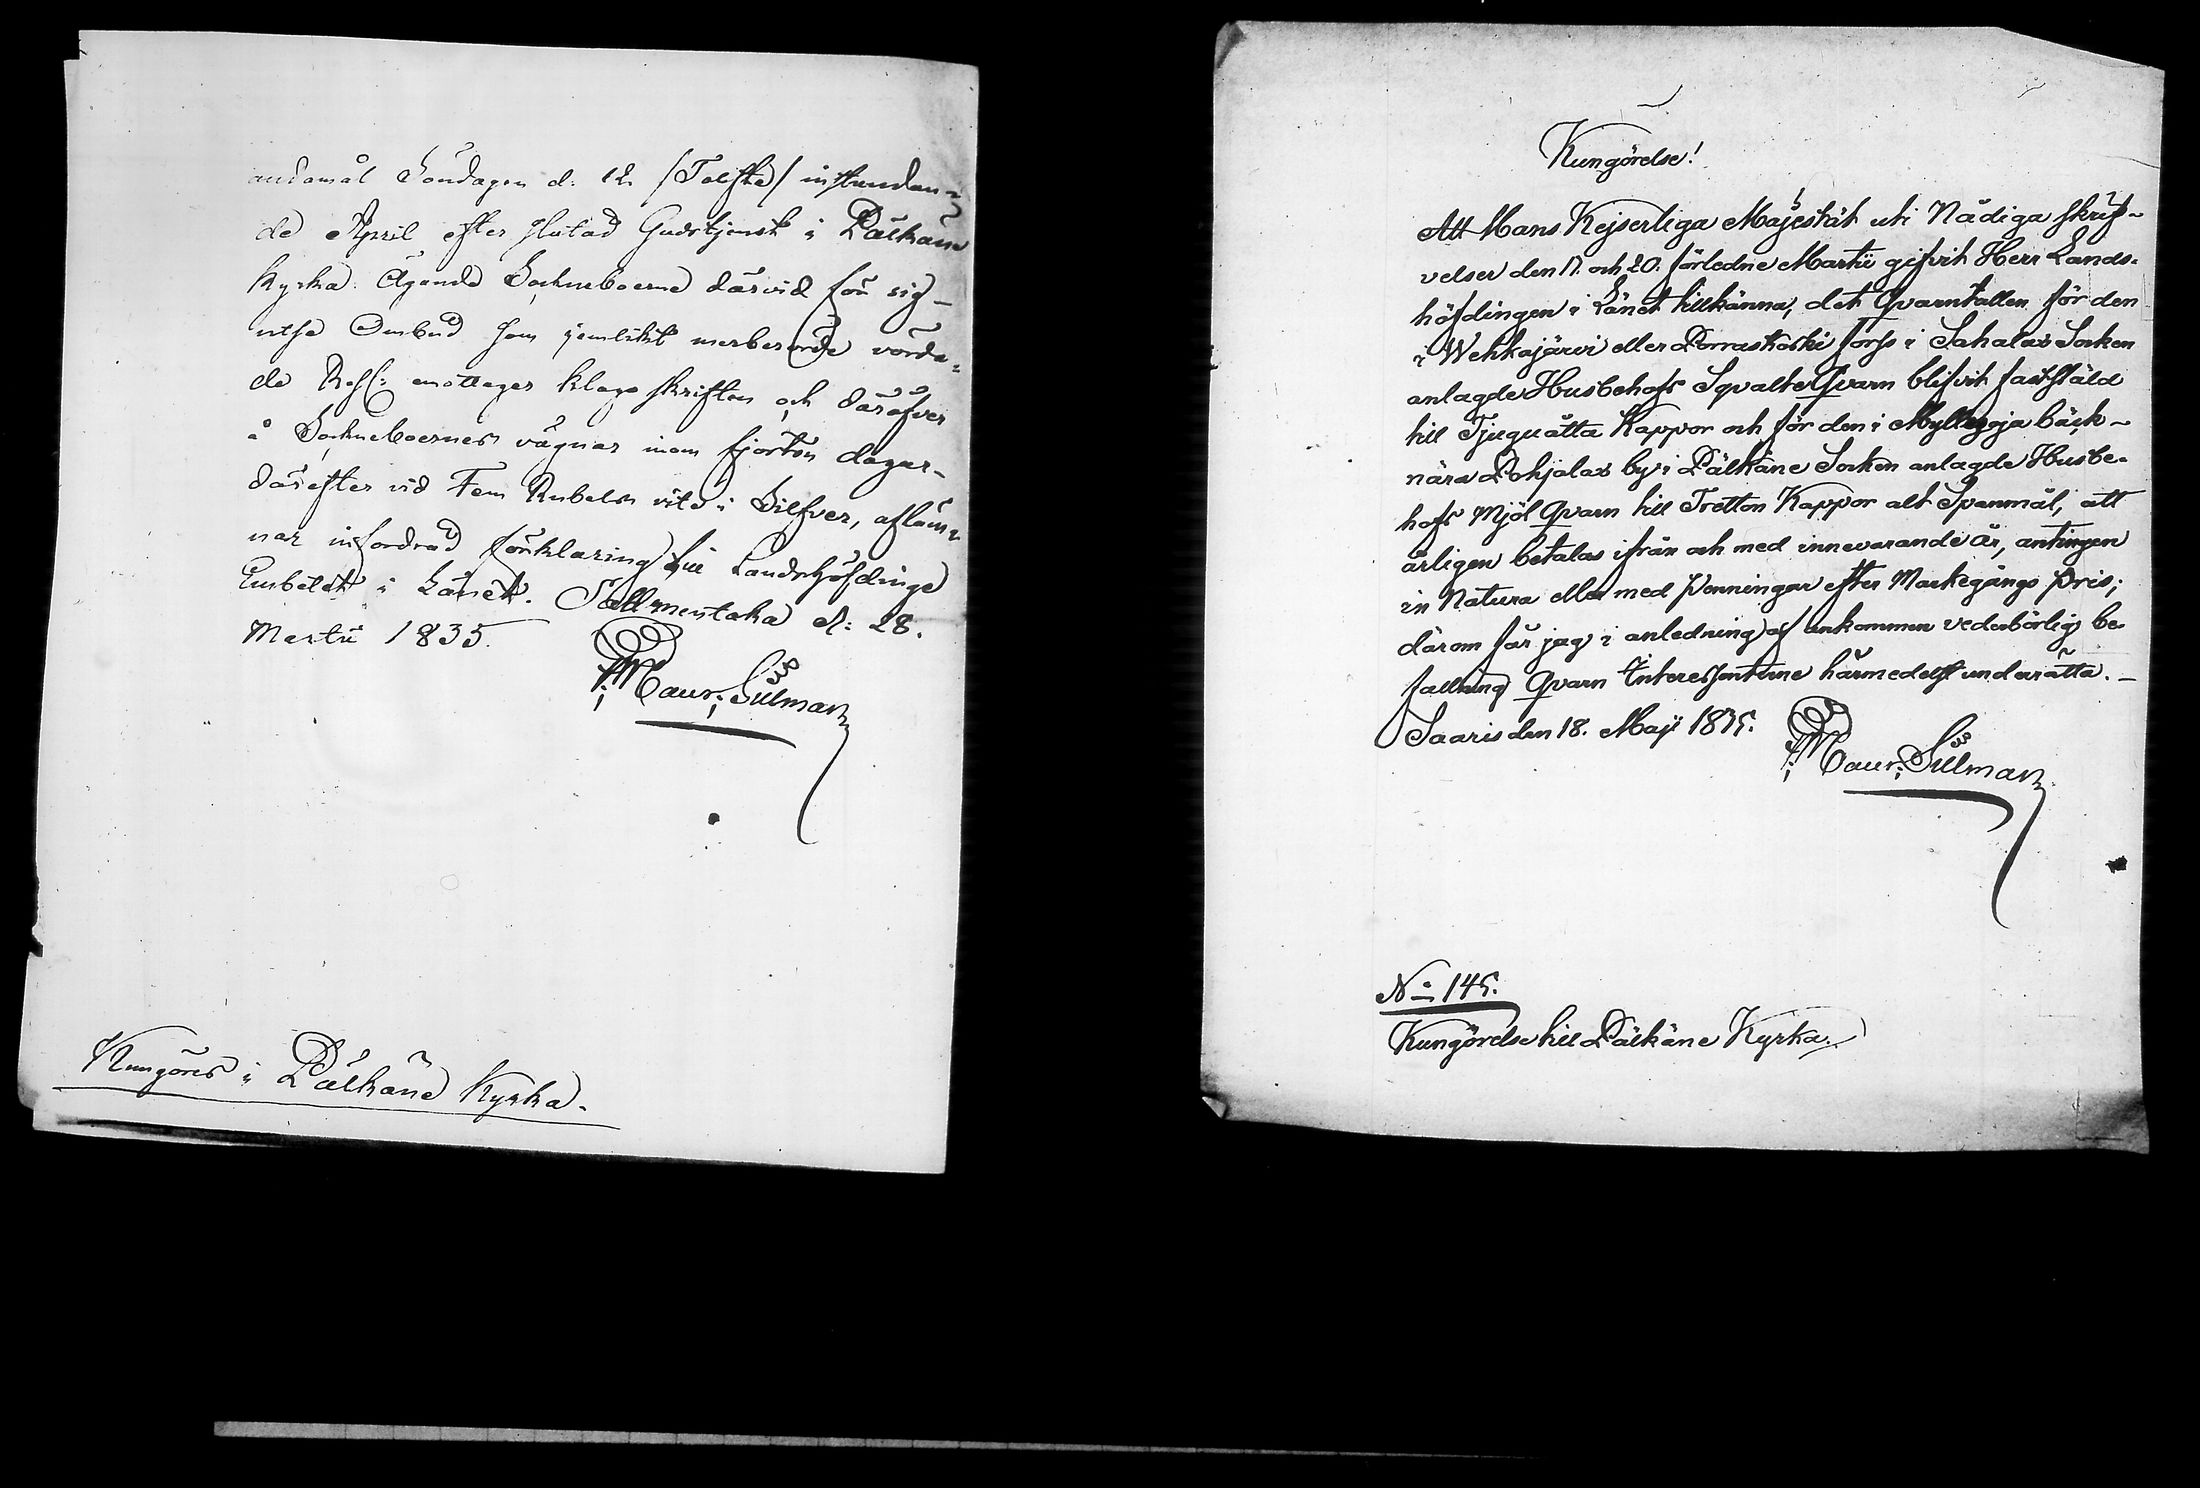 andamål Söndagen d. 12. /Tolfte/ instundan-
de April efter slutad Gudstjenst i Pälkäne
Kyrka. Ägande Sockneboerne därvid för sig
utse Ombud som jemlikt merberörde vörda-
de Resl: emottager klagoskriften och däröfver
å Sockneboernes vägnar inom fjorton dagar
därefter vid Fem Rubels vite i Silfver, afläm-
nar infordrad förklaring till Landshöfdinge
Embetet i Länet. Sallmentaka d: 28.
Martii 1835.
Maur: Silman
Kungöres i Pälkäne Kyrka.
Kungörelse!
Att Hans Kejserliga Majestät uti Nådiga skrif-
velser den 17. och 20. förledne Martii gifvit Herr Lands-
höfdingen i Länet tillkänna, det Qvarntullen för den
i Wehkajärvi eller Porraskoski forss i Sahalax Socken
anlagde Husbehofs Sqvalte Qvarn blifvit fastställd
till Tjuguåtta Kappor och för den i Myllyoja bäck
nära Pohjalax by i Pälkäne Socken anlagde Husbe-
hofs Mjöl Qvarn till Tretton Kappor alt Spanmål, att
årligen betalas ifrån och med innevarande år, antingen
in Natura eller med Penningar efter Markegångs Pris;
därom får jag i anledning af ankommen vederbörlig be-
fallning Qvarn Interessenterne härmedelst underrätta.
Saaris den 18. Maji 1835.
Maur: Silman
No 145.
Kungörelse till Pälkäne Kyrka.